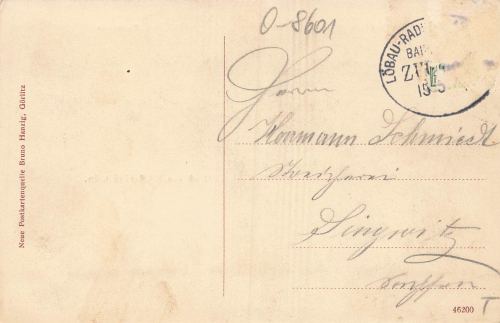 O-8601
LÖBAU-RAD
BAH
ZU
19
Herrn
Hermann Schmiedt
Singwitz
Sachsen
T
Neue Postkartenquelle Bruno Hanzig, Görlitz
46200